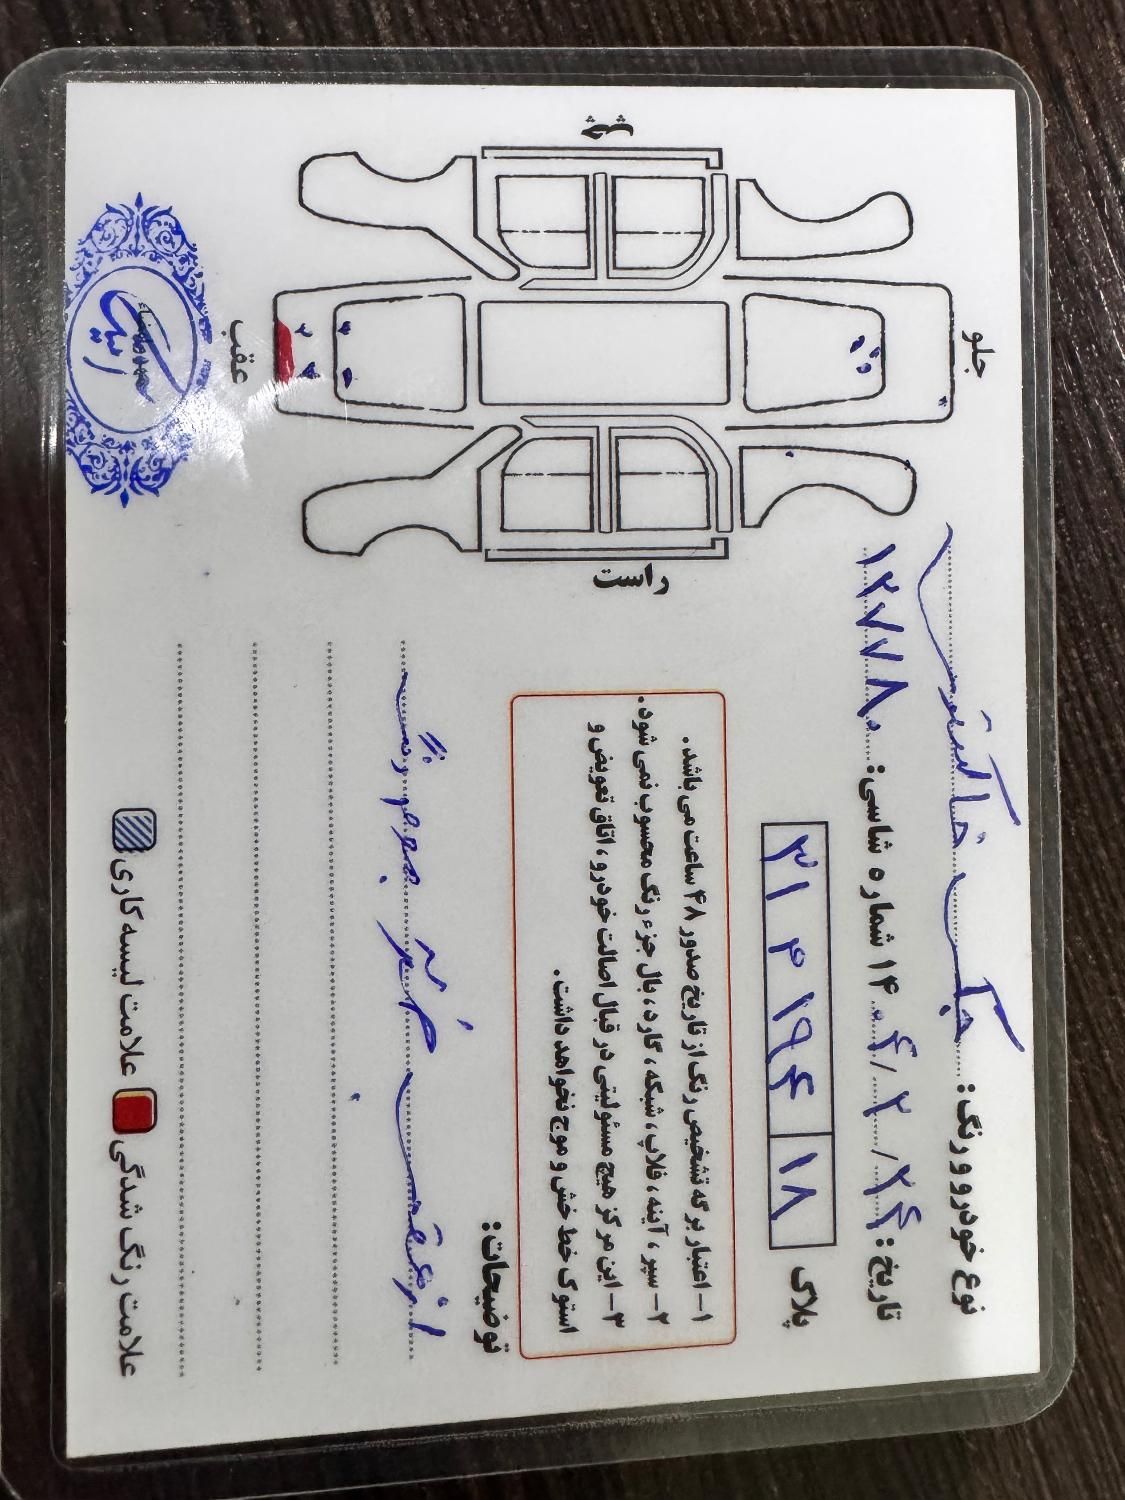 چپ
جلو
عقب
راست
نوع خودرو و رنگ: جک خاکستری
تاریخ: ۱۴۰۴/۲/۲۴ شماره شاسی: ۱۲۷۷۸۰
پلاک ۱۸ ۱۹۴ م ۳۱
۱- اعتبار برگه تشخیص رنگ از تاریخ صدور ۴۸ ساعت می باشد.
۲- سپر، آینه، فلاپ، شبکه، گارد، بال جزء رنگ محسوب نمی شود.
۳- این مرکز هیچ مسئولیتی در قبال اصالت خودرو، اتاق تعویض و
استوک خط خش و موج نخواهد داشت.
توضیحات:
علامت رنگ شدگی علامت لیسه کاری